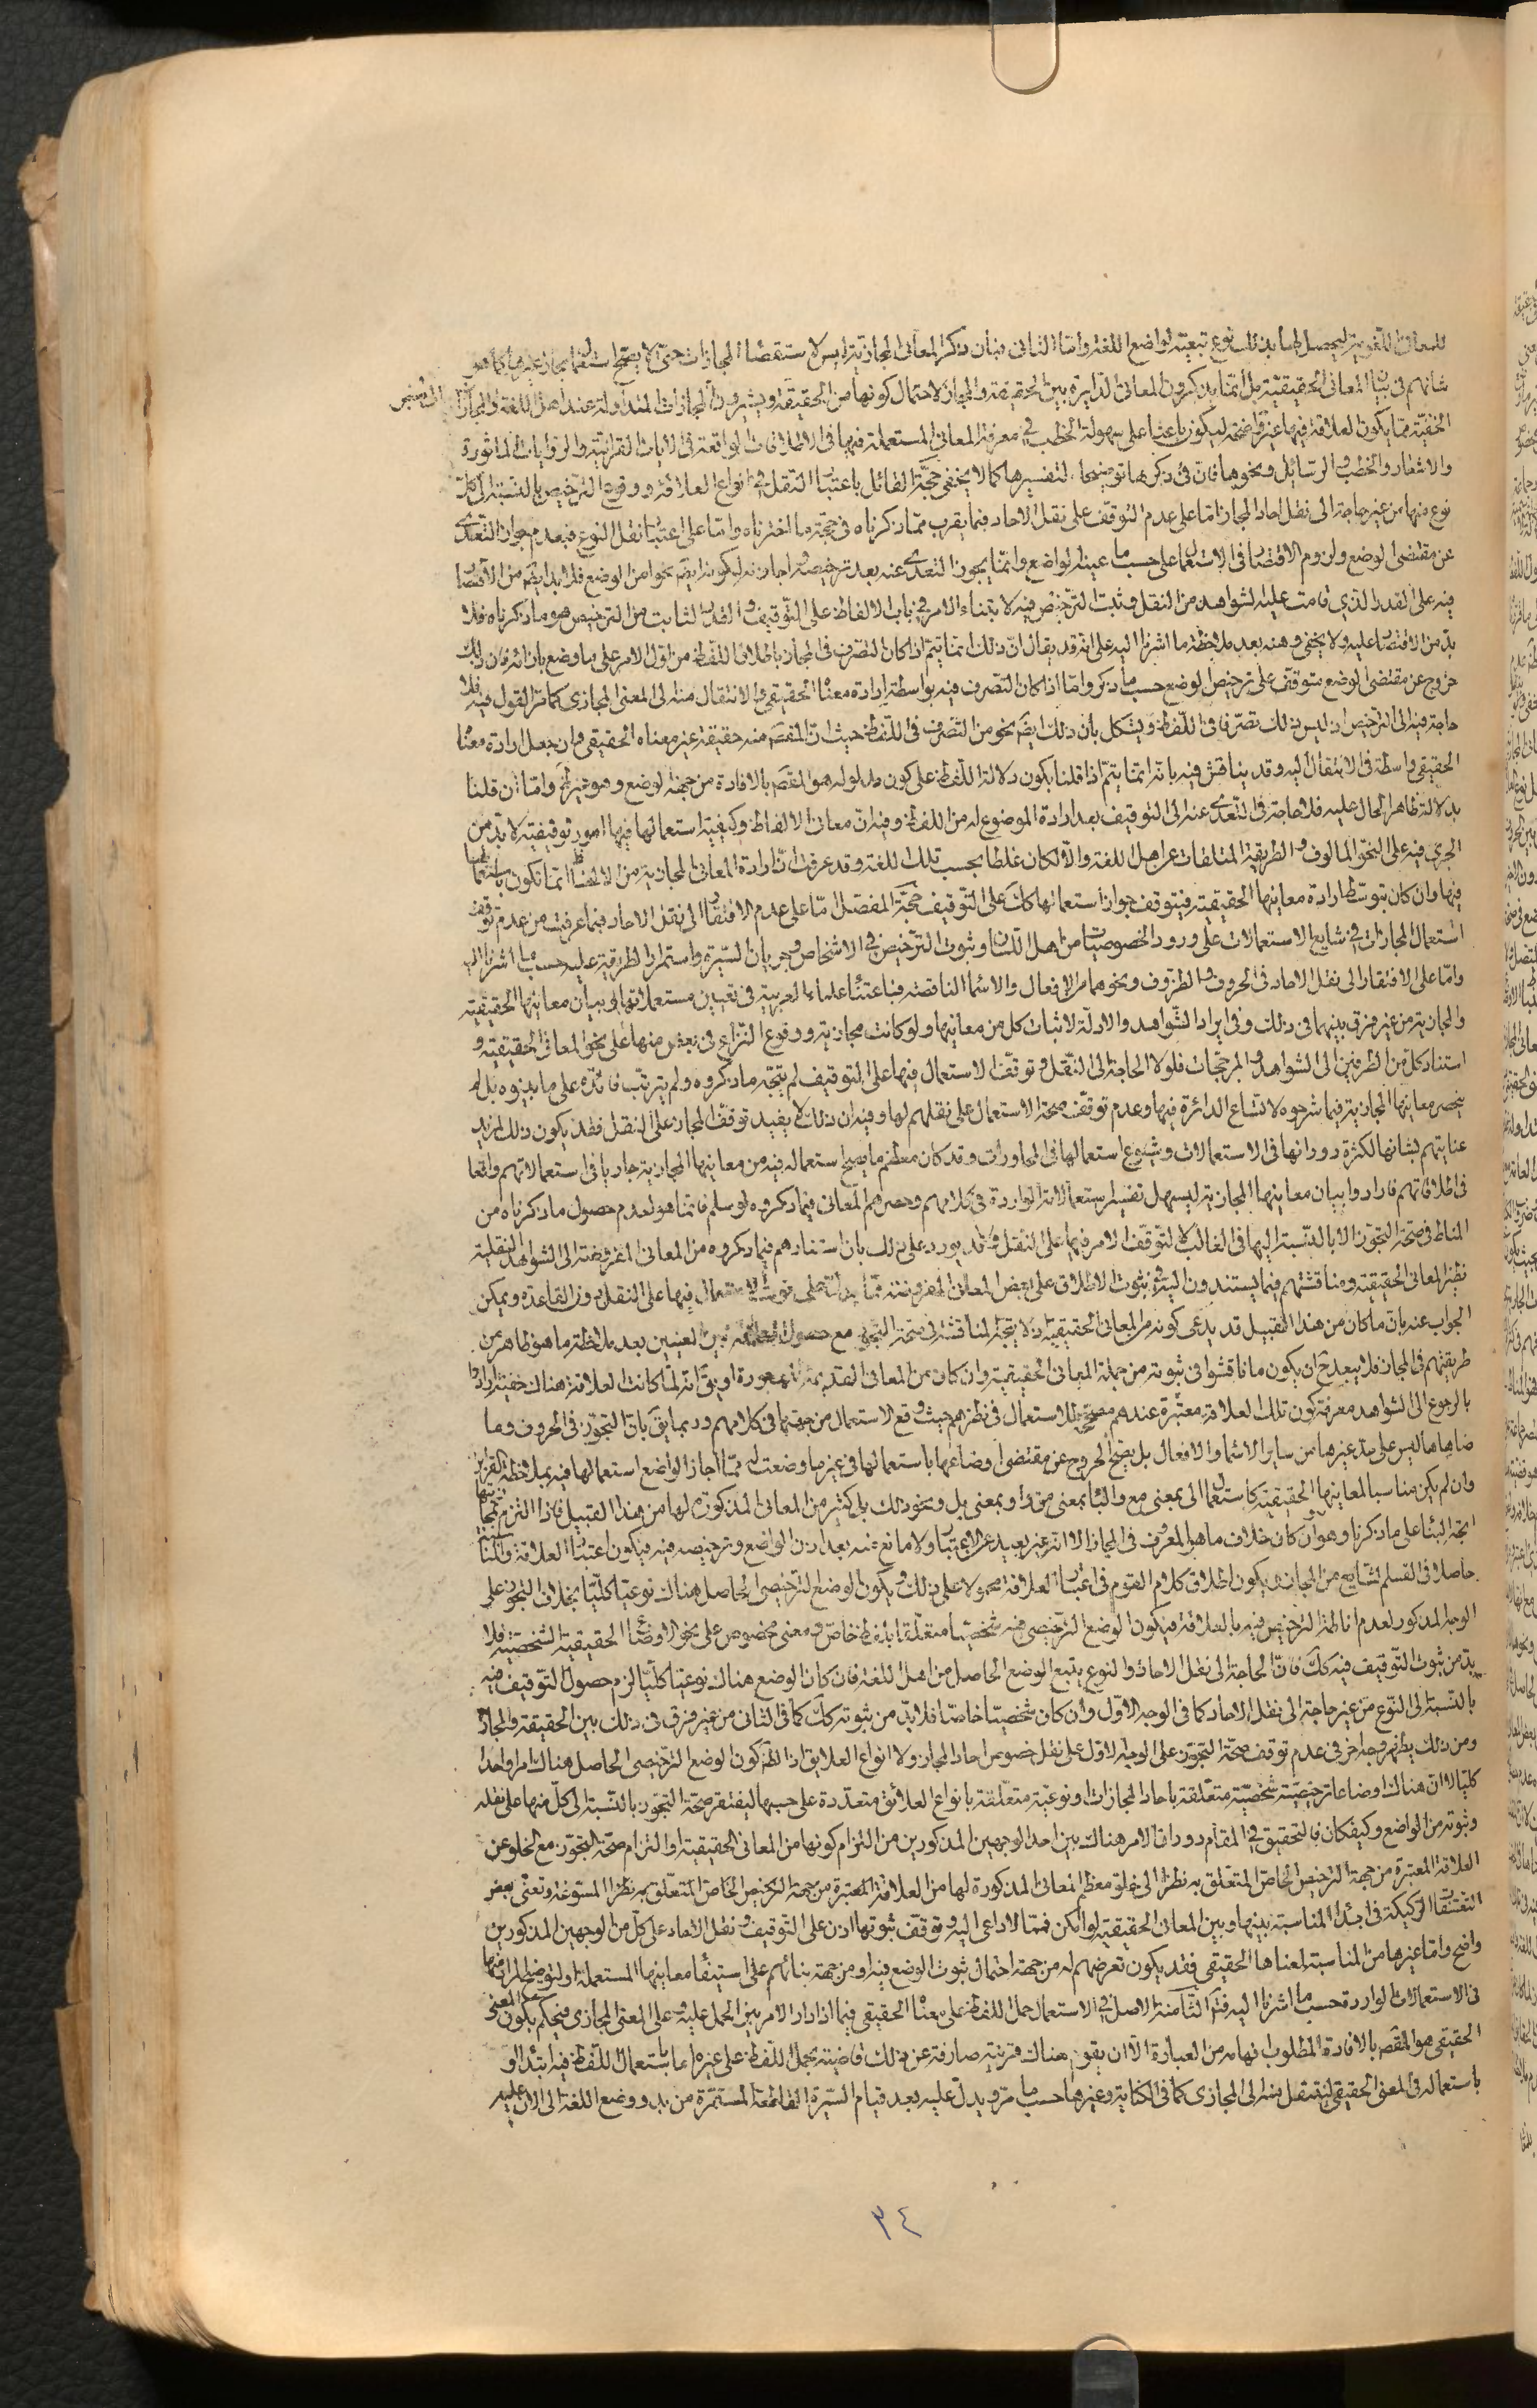 للمعانى اللغوية ليحصل لها بذلك نوع تبعية لواضع اللغة واما الثانى فبان ذكر المعانى المجازية ليس لاستقصاء المجازات حتى لا يصح استعمالها بمجاز غيرها كما هو
شانهم فى بيان المعانى الحقيقية بل انما يذكرون المعانى الدايرة بين الحقيقة والمجاز لاحتمال كونها من الحقيقة ويشيرون الى المجازات المتداولة عند اهل اللغة والمجازات
الخفية مما يكون العلاقة فيها غير واضحة ليكون باعثا على سهولة الخطب فى معرفة المعانى المستعملة فيها فى الاطلاقات الواقعة فى الايات القرانية والروايات الماثورة
والاشعار والخطب والرسائل ونحوها فان فى ذكرها توضيحا لتفسيرها كما لا يخفى حجة القائل باعتبار النقل فى انواع العلاقة ووقوع الترخيص بالنسبة الى كل
نوع منها من غير حاجة الى نقل احاد المجاز اما على عدم التوقف على نقل الاحاد فبما يقرب مما ذكرناه فى حجة ما اخترناه واما على اعتبار نقل النوع فبعدم جواز التعدى
عن مقتضى الوضع ولزوم الاقتصار فى الاستعمال على حسب ما عينه الواضع وانما يجوز التعدى عنه بعد ترخيصه واجازته ليكون ذلك ايضا نحوا من الوضع فلا بد ايضا من الاقتصار
فيه على القدر الذى قامت عليه الشواهد من النقل وثبت الترخيص فيه لابتناء الامر فى باب الالفاظ على التوقيف والقدر الثابت من الترخيص هو ما ذكرناه فلا
بد من الاقتصار عليه ولا يخفى وهنه بعد ملاحظة ما اشرنا اليه على انه قد يقال ان ذلك انما يتم اذا كان التصرف فى المجاز باطلاق اللفظ من اول الامر على ما وضع بازائه فان ذلك
خروج عن مقتضى الوضع متوقف على ترخيص الوضع حسب ما ذكر واما اذا كان التصرف فيه بواسطة ارادة معناه الحقيقى والانتقال منه الى المعنى المجازى كما مر القول فيه فلا
حاجة فيه الى الترخيص اذ ليس ذلك تصرفا فى اللفظ ويشكل بان ذلك ايضا نحو من التصرف فى اللفظ حيث ان المقصود منه حقيقة غير معناه الحقيقى وان جعل ارادة معناه
الحقيقى واسطة فى الانتقال اليه وقد يناقش فيه بانه انما يتم اذا قلنا بكون دلالة اللفظ على كون مدلوله هو المقصود بالافادة من جهة الوضع وهو غير ظاهر واما ان قلنا
بدلالة ظاهر الحال عليه فلا حاجة فى التعدى عنه الى التوقيف بعد ارادة الموضوع له من اللفظ وفيه ان معانى الالفاظ وكيفية استعمالها فيها امور توقيفية لا بد من
الجرى فيه على النحو المالوف والطريقة المتلقاة عن اهل اللغة والا لكان غلطا بحسب تلك اللغة وقد عرفت ان ارادة المعانى المجازية من الالفاظ انما تكون باستعمالها
فيها وان كان بتوسط ارادة معانيها الحقيقية فيتوقف جواز استعمالها كك على التوقيف حجة المفصل اما على عدم الافتقار الى نقل الاحاد فبما عرفت من عدم توقف
استعمال المجازات فى شايع الاستعمالات على ورود الخصوصيات من اهل اللسان وثبوت الترخيص فى الاشخاص وجريان السيرة واستمرار الطريقة عليه حسب ما اشرنا اليه
واما على الافتقار الى نقل الاحاد فى الحروف والظروف ونحوهما من الافعال والاسماء الناقصة فباعتناء علماء العربية فى تعيين مستعملاتها الى بيان معانيها الحقيقية
والمجازية من غير فرق بينهما فى ذلك وفى ايراد الشواهد والادلة لاثبات كل من معانيها ولو كانت مجازية ووقوع النزاع فى بعض منها على نحو المعانى الحقيقية و
استناد كل من الطرفين الى الشواهد والمرجحات فلولا الحاجة الى النقل وتوقف الاستعمال فيها على التوقيف لم يتجه ما ذكروه ولم يترتب فائدة على ما بينوه بل لم
ينحصر معانيها المجازية فيما شرحوه لاتساع الدائرة فيها وعدم توقف صحة الاستعمال على نقلهم لها وفيه ان ذلك لا يفيد توقف المجاز على النقل فقد يكون ذلك لمزيد
عنايتهم بشانها لكثرة دورانها فى الاستعمالات وشيوع استعمالها فى المحاورات وقد كان معظم ما يصح استعماله فيه من معانيها المجازية جاريا فى استعمالاتهم واقعا
فى اطلاقاتهم فارادوا بيان معانيها المجازية ليسهل تفسير استعمالاته الواردة فى كلامهم وحصرهم المعانى فيما ذكروه لو سلم فانما هو لعدم حصول ما ذكرناه من
المناط فى صحة التجوز الا بالنسبة اليها فى الغالب لا لتوقف الامر فيها على النقل وقد يورد على ذلك بان استنادهم فيما ذكروه من المعانى المفروضة الى الشواهد النقلية
نظير المعانى الحقيقية ومناقشتهم فيما يستندون اليه فى ثبوت الاطلاق على بعض المعانى المفروضة مما يدل على توقف الاستعمال فيها على النقل دون القاعدة ويمكن
الجواب عنه بان ما كان من هذا القبيل قد يدعى كونه من المعانى الحقيقية اذ لا يتجه المناقشة فى صحة التجوز مع حصول العلاقة بين المعنيين بعد ملاحظة ما هو ظاهر من
طريقتهم فى المجاز فلا يبعد ح ان يكون ما ناقشوا فى ثبوته من جملة المعانى الحقيقية وان كان من المعانى القديمة المهجورة او يق انه لما كانت العلاقة هناك خفية ارادوا
بالرجوع الى الشواهد معرفة كون تلك العلاقة معتبرة عندهم مصححة للاستعمال فى نظرهم حيث وقع الاستعمال من جهتها فى كلامهم وربما يق بان التجوز فى الحروف وما
ضاهاها ليس على حد غيرها من ساير الاسماء والافعال بل يصح الخروج عن مقتضى اوضاعها باستعمالها فى غير ما وضعت له مما اجاز الواضع استعمالها فيه بملاحظة القرائن
وان لم يكن مناسبا لمعانيها الحقيقية كاستعمال الى بمعنى مع والباء بمعنى من او بمعنى بل ونحو ذلك بل كثير من المعانى المذكورة لها من هذا القبيل فاذا التزم بمجازيتها
اتجه البناء على ما ذكرنا وهو وان كان خلاف ما هو المعروف فى المجاز الا انه غير بعيد عن الاعتبار ولا مانع عنه بعد اذن الواضع وترخيصه فيه فيكون اعتبار العلاقة والمناسبة
حاصلا فى القسم الشايع من المجاز ويكون اطلاق كلام القوم فى اعتبار العلاقة محمولا على ذلك ويكون الوضع الترخيصى الحاصل هناك نوعيا كليا بخلاف التجوز على
الوجه المذكور لعدم اناطة الترخيص فيه بالعلاقة فيكون الوضع الترخيصى فيه شخصيا متعلقا بلفظ خاص ومعنى مخصوص على نحو الاوضاع الحقيقية الشخصية فلا
بد من ثبوت التوقيف فيه كك فان الحاجة الى نقل الاحاد والنوع يتبع الوضع الحاصل من اهل اللغة فان كان الوضع هناك نوعيا كليا لزم حصول التوقيف فيه
بالنسبة الى النوع من غير حاجة الى نقل الاحاد كما فى الوجه الاول وان كان شخصيا خاصا فلا بد من ثبوته كك كما فى الثانى من غير فرق فى ذلك بين الحقيقة والمجاز
ومن ذلك يظهر وجه اخر فى عدم توقف صحة التجوز على الوجه الاول على نقل خصوص احاد المجاز ولا انواع العلايق اذ الظ كون الوضع الترخيصى الحاصل هناك امرا واحدا
كليا لا ان هناك اوضاعا ترخيصية شخصية متعلقة باحاد المجازات او نوعية متعلقة بانواع العلائق متعددة على حسبها ليفتقر صحة التجوز بالنسبة الى كل منها على نقله
وثبوته من الواضع وكيفكان فالتحقيق فى المقام دوران الامر هناك بين احد الوجهين المذكورين من التزام كونها من المعانى الحقيقية او التزام صحة التجوز مع الخلو عن
العلاقة المعتبرة من جهة الترخيص الخاص المتعلق به نظرا الى خلو معظم المعانى المذكورة لها من العلاقة المعتبرة من جهة الترخيص الخاص المتعلق به نظرا المسوغة وتعنى بعض
التعسفات الركيكة فى ابداء المناسبة بينها وبين المعانى الحقيقية لو امكن فمما لا داعى اليه وتوقف ثبوتها اذن على التوقيف ونقل الاحاد على كل من الوجهين المذكورين
واضح واما غيرها من المناسبة لمعناها الحقيقى فقد يكون تعرضهم له من جهة احتمال ثبوت الوضع فيه او من جهة بنائهم على استيفاء معانيها المستعملة او لتوضيح المراد منها
فى الاستعمالات الواردة حسب ما اشرنا اليه فتم الثامنة الاصل فى الاستعمال حمل اللفظ على معناه الحقيقى فيما اذا دار الامر بين الحمل عليه وعلى المعنى المجازى فيحكم بكون المعنى
الحقيقى هو المقصود بالافادة المطلوب فهامه من العبارة الا ان يقوم هناك قرينة صارفة عن ذلك قاضية بحمل اللفظ على غيره اما باستعمال اللفظ فيه ابتداء او
باستعماله فى المعنى الحقيقى لينتقل منه الى المجازى كما فى الكناية وغيرها حسب ما مر ويدل عليه بعد قيام السيرة القاطعة المستمرة من بدو وضع اللغة الى الان عليه
٣٤